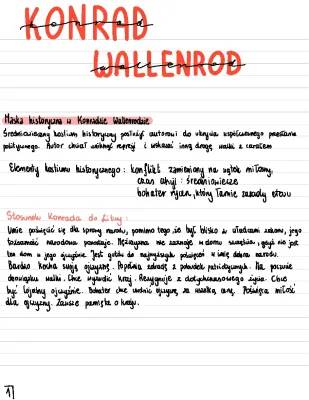 KONRAD
konrad
WALLENROD
wallenrod
Maska historyczna w Konradzie Wallenrodzie
Średniowieczny kostium historyczny posłużył autorowi do ukrycia współczesnego przesłania
politycznego. Autor chciał uniknąć represji i wskazać inną drogę walki z caratem
Elementy kostiumu historycznego: konflikt zamieniony na wątek miłosny,
czas akcji: Średniowiecze
bohater rycerz, który łamie zasady etosu
Stosunek Konrada do Litwy:
Umie poświęcić się dla sprawy narodu, pomimo tego, że był blisko z władzami zakonu, jego
tożsamość narodowa pozostaje. Mężczyzna nie zaznaje w domu szczęścia, gdyż nie jest
ten dom w jego ojczyźnie. Jest gotów do najwyższych poświęceń w imię dobra narodu.
Bardzo kocha swoją ojczyznę. Popełnia zdradę z pobudek patriotycznych. Ma poczucie
obowiązku walki. Chce wyzwolić kraj. Rezygnuje z dotychczasowego życia. Chce
być lojalny ojczyźnie. Bohater chce uwolnić ojczyznę za wszelką cenę. Poświęca miłość
dla ojczyzny. Zawsze pamięta o kraju.
1